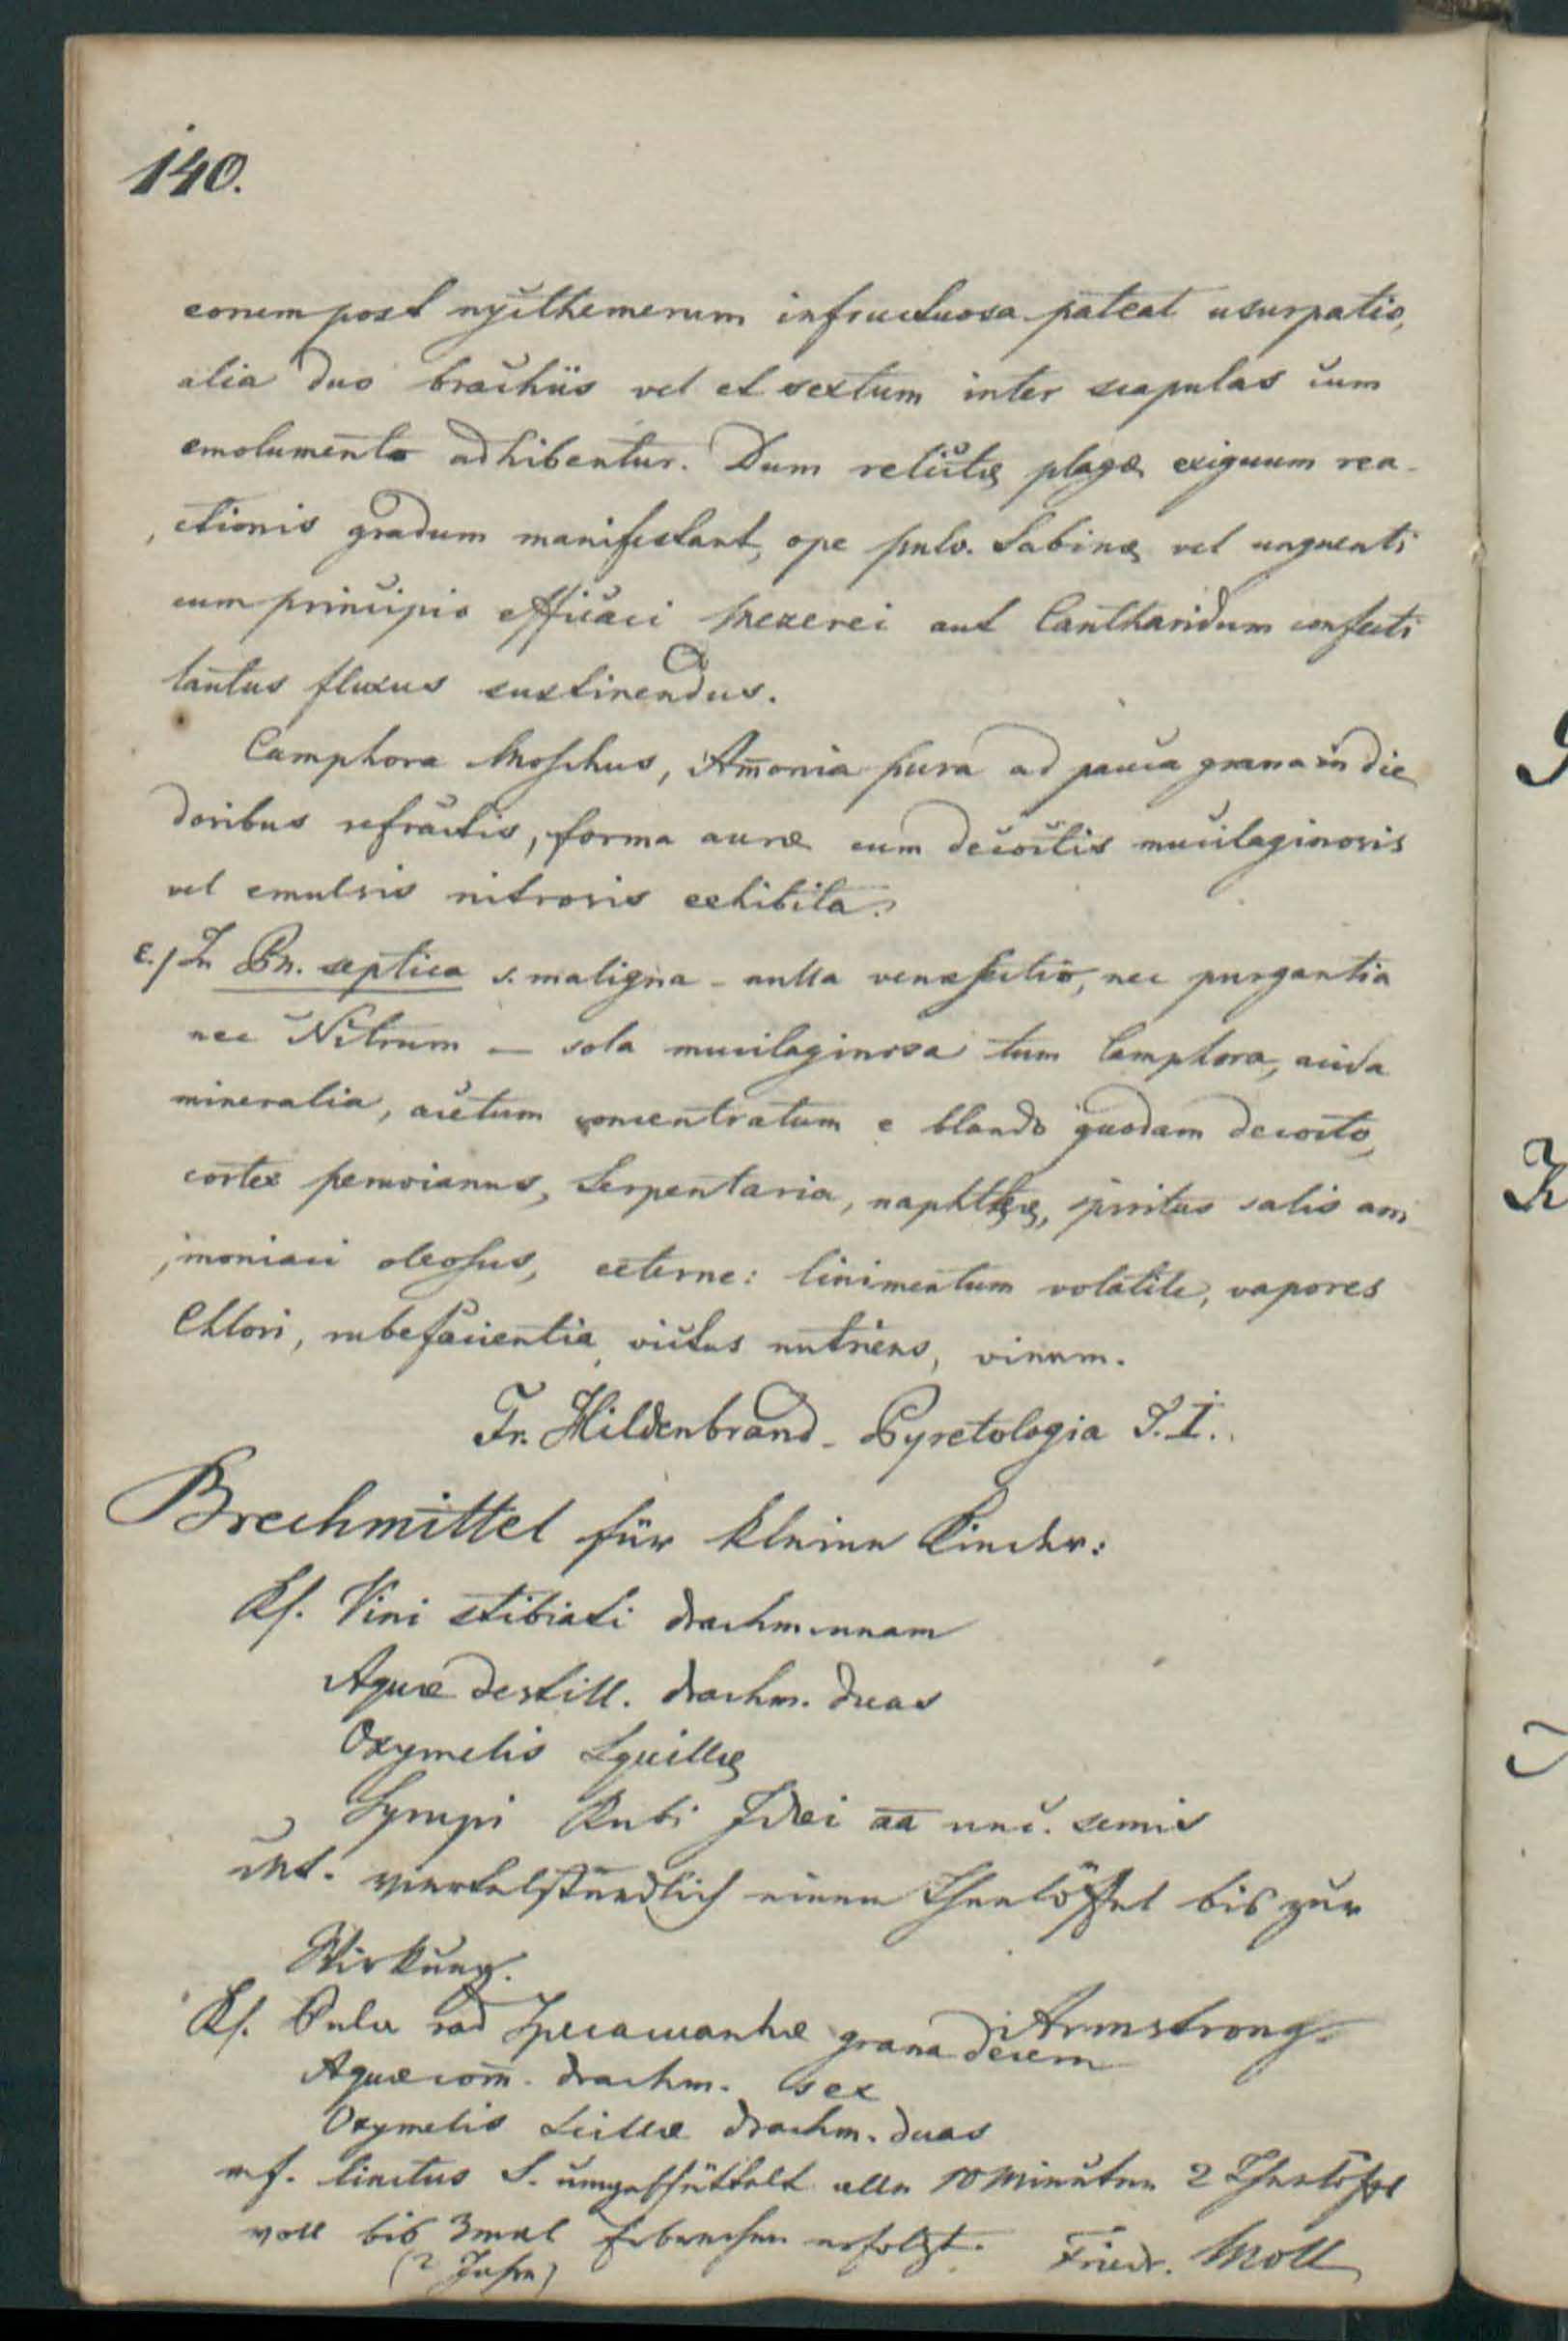 140.
eorum post nycthemerum infructuosa pateat usurpatio,
alia duo brachiis vel et sextum inter scapulas cum
emolumento adhibentur. Dum relictæ plagæ exiguum rea-
ctionis gradum manifestant, ope pulv. Sabinæ vel unguenti
cum principio efficaci Mezerei aut Cantharidum confecti
tantus fluxus sustinendus.
Camphora Moschus, Am̄onia pura ad pauca grana in die
dosibus refractis, forma auræ cum decoctis mucilaginosis
vel emulsis nitrosis exhibita.
ε./ In Pn. septica s. maligna - nulla venæsectio, nec purgantia
nec Nitrum — sola mucilaginosa tum Camphora, acida
mineralia, acetum concentratum e blando quodam decocto,
cortex peruvianus, Serpentaria, naphthæ, spiritus salis am
moniaci oleosus, externe: linimentum volatile, vapores
Chlori, rubefacientia, victus nutriens, vinum.
Fr. Hildenbrand - Pyretologia T. I.
Brechmittel für kleine Kinder:
Rf. Vini stibiati drachm. unam
Aquæ destill. drachm. duas
Oxymelis Squillæ
Syrupi Rubi Idæi aa unc. semis
viertelstündlich einen Theelöffel bis zur
Wirkung.
Armstrong.
Rf. Pulv rad Ipecacuanhæ grana decem
Aquæ com̄. drachm. sex
Oxymelis Scillæ drachm. duas
mf. linctus S. umgeschüttelt alle 10 Minuten 2 Theelöffel
voll bis 3mal Erbrechen erfolgt. Friedr. Moll
(2 Jahre)